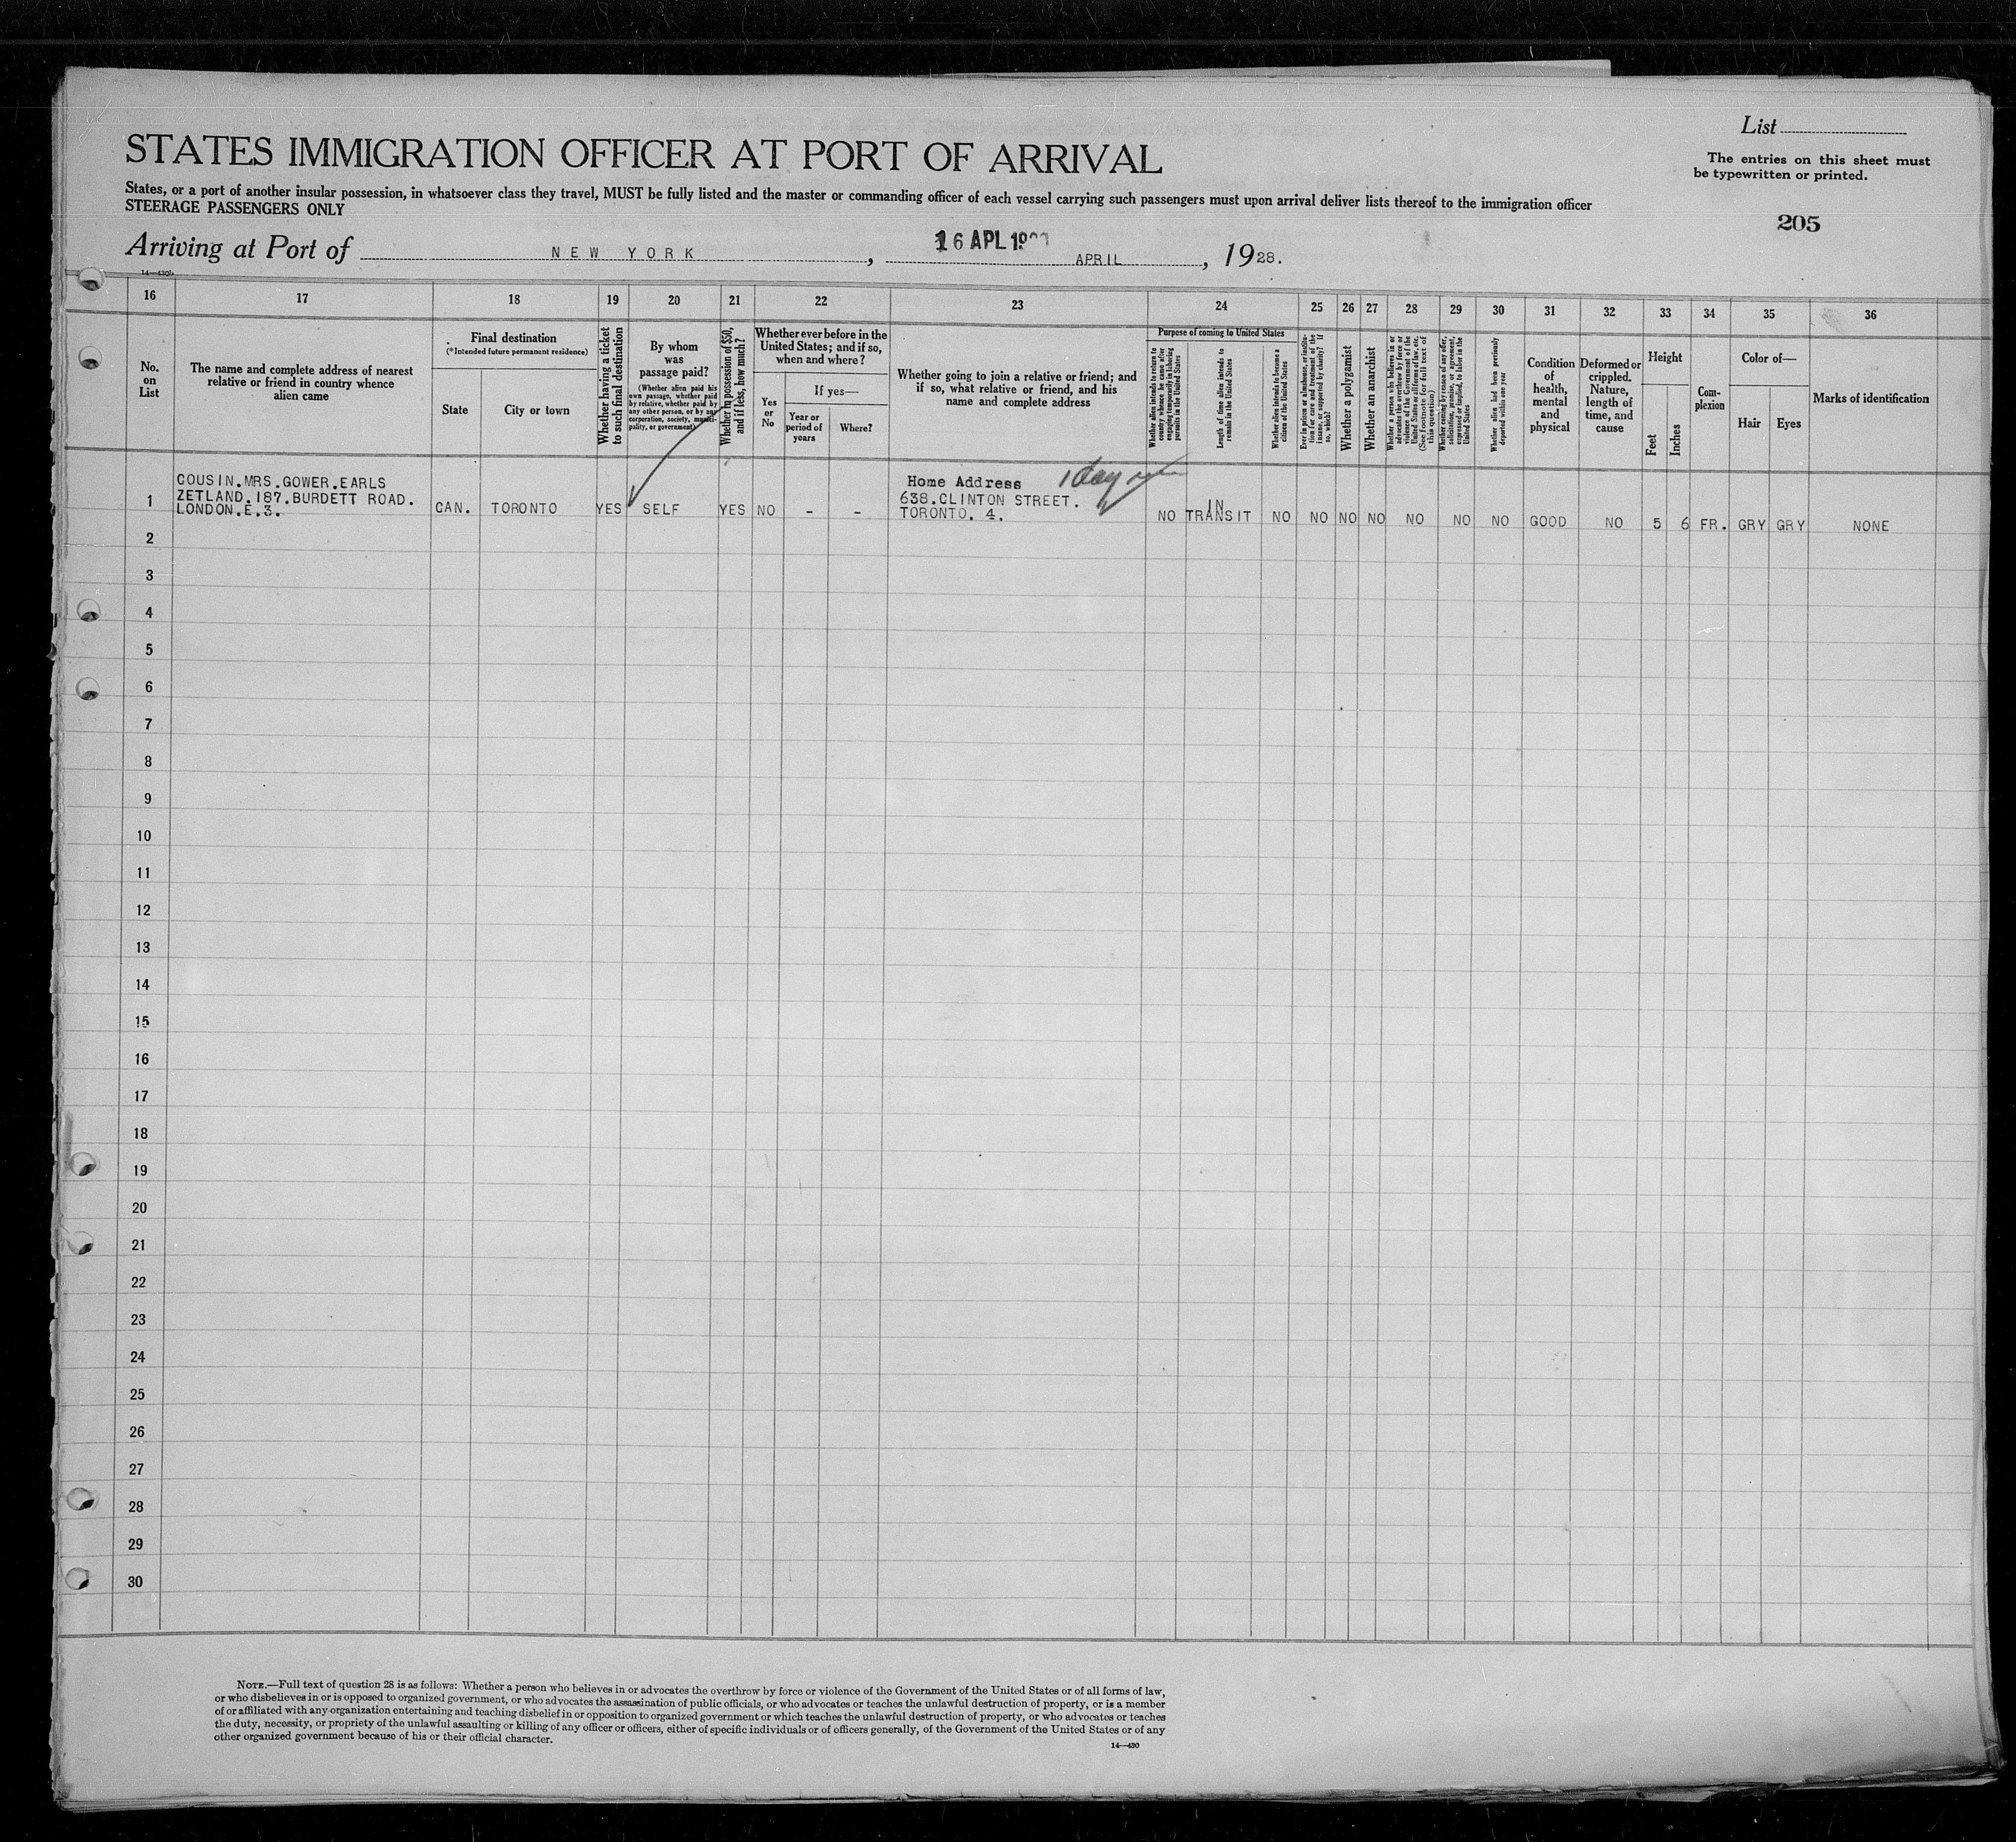 List
STATES IMMIGRATION OFFICER AT PORT OF ARRIVAL
The entries on this sheet must
be typewritten or printed.
States, or a port of another insular possession, in whatsoever class they travel, MUST be fully listed and the master or commanding officer of each vessel carrying such passengers must upon arrival deliver lists thereof to the immigration officer
STEERAGE PASSENGERS ONLY
205
Arriving at Port of NEW YORK, 16 APL APRIL, 1928.
14—430b
16 17 18 19 20 21 22 23 24 25 26 27 28 29 30 31 32 33 34 35 36
No.
on
List
The name and complete address of nearest
relative or friend in country whence
alien came
Final destination
(*Intended future permanent residence)
State
City or town
Whether having a ticket
to such final destination
By whom
was
passage paid?
(Whether alien paid his
own passage, whether paid
by relative, whether paid by
any other person, or by any
corporation, society, munici-
pality, or government)
Whether in possession of $50,
and if less, how much?
Whether ever before in the
United States; and if so,
when and where?
Yes
or
No
If yes—
Year or
period of
years
Where?
Whether going to join a relative or friend; and
if so, what relative or friend, and his
name and complete address
Purpose of coming to United States
Whether alien intends to return to
country whence he came after
engaging temporarily in laboring
pursuits in the United States
Length of time alien intends to
remain in the United States
Whether alien intends to become a
citizen of the United States
Ever in prison or almshouse, or institu-
tion for care and treatment of the
insane, or supported by charity? If
so, which?
Whether a polygamist
Whether an anarchist
Whether a person who believes in or
advocates the overthrow by force or
violence of the Government of the
United States or all forms of law, etc.
(See footnote for full text of
this question)
Whether coming by reason of any offer,
solicitation, promise, or agreement,
expressed or implied, to labor in the
United States
Whether alien had been previously
deported within one year
Condition
of
health,
mental
and
physical
Deformed or
crippled.
Nature,
length of
time, and
cause
Height
Feet
Inches
Com-
plexion
Color of—
Hair
Eyes
Marks of identification
1
COUSIN.MRS.GOWER.EARLS
ZETLAND.187.BURDETT ROAD.
LONDON.E.3.
CAN. TORONTO YES SELF YES NO - -
Home Address
638.CLINTON STREET.
TORONTO. 4.
1 day
NO IN
TRANSIT NO NO NO NO NO NO NO GOOD NO 5 6 FR. GRY GRY NONE
2
3
4
5
6
7
8
9
10
11
12
13
14
15
16
17
18
19
20
21
22
23
24
25
26
27
28
29
30
NOTE.—Full text of question 28 is as follows: Whether a person who believes in or advocates the overthrow by force or violence of the Government of the United States or of all forms of law,
or who disbelieves in or is opposed to organized government, or who advocates the assassination of public officials, or who advocates or teaches the unlawful destruction of property, or is a member
of or affiliated with any organization entertaining and teaching disbelief in or opposition to organized government or which teaches the unlawful destruction of property, or who advocates or teaches
the duty, necessity, or propriety of the unlawful assaulting or killing of any officer or officers, either of specific individuals or of officers generally, of the Government of the United States or of any
other organized government because of his or their official character.
14—430